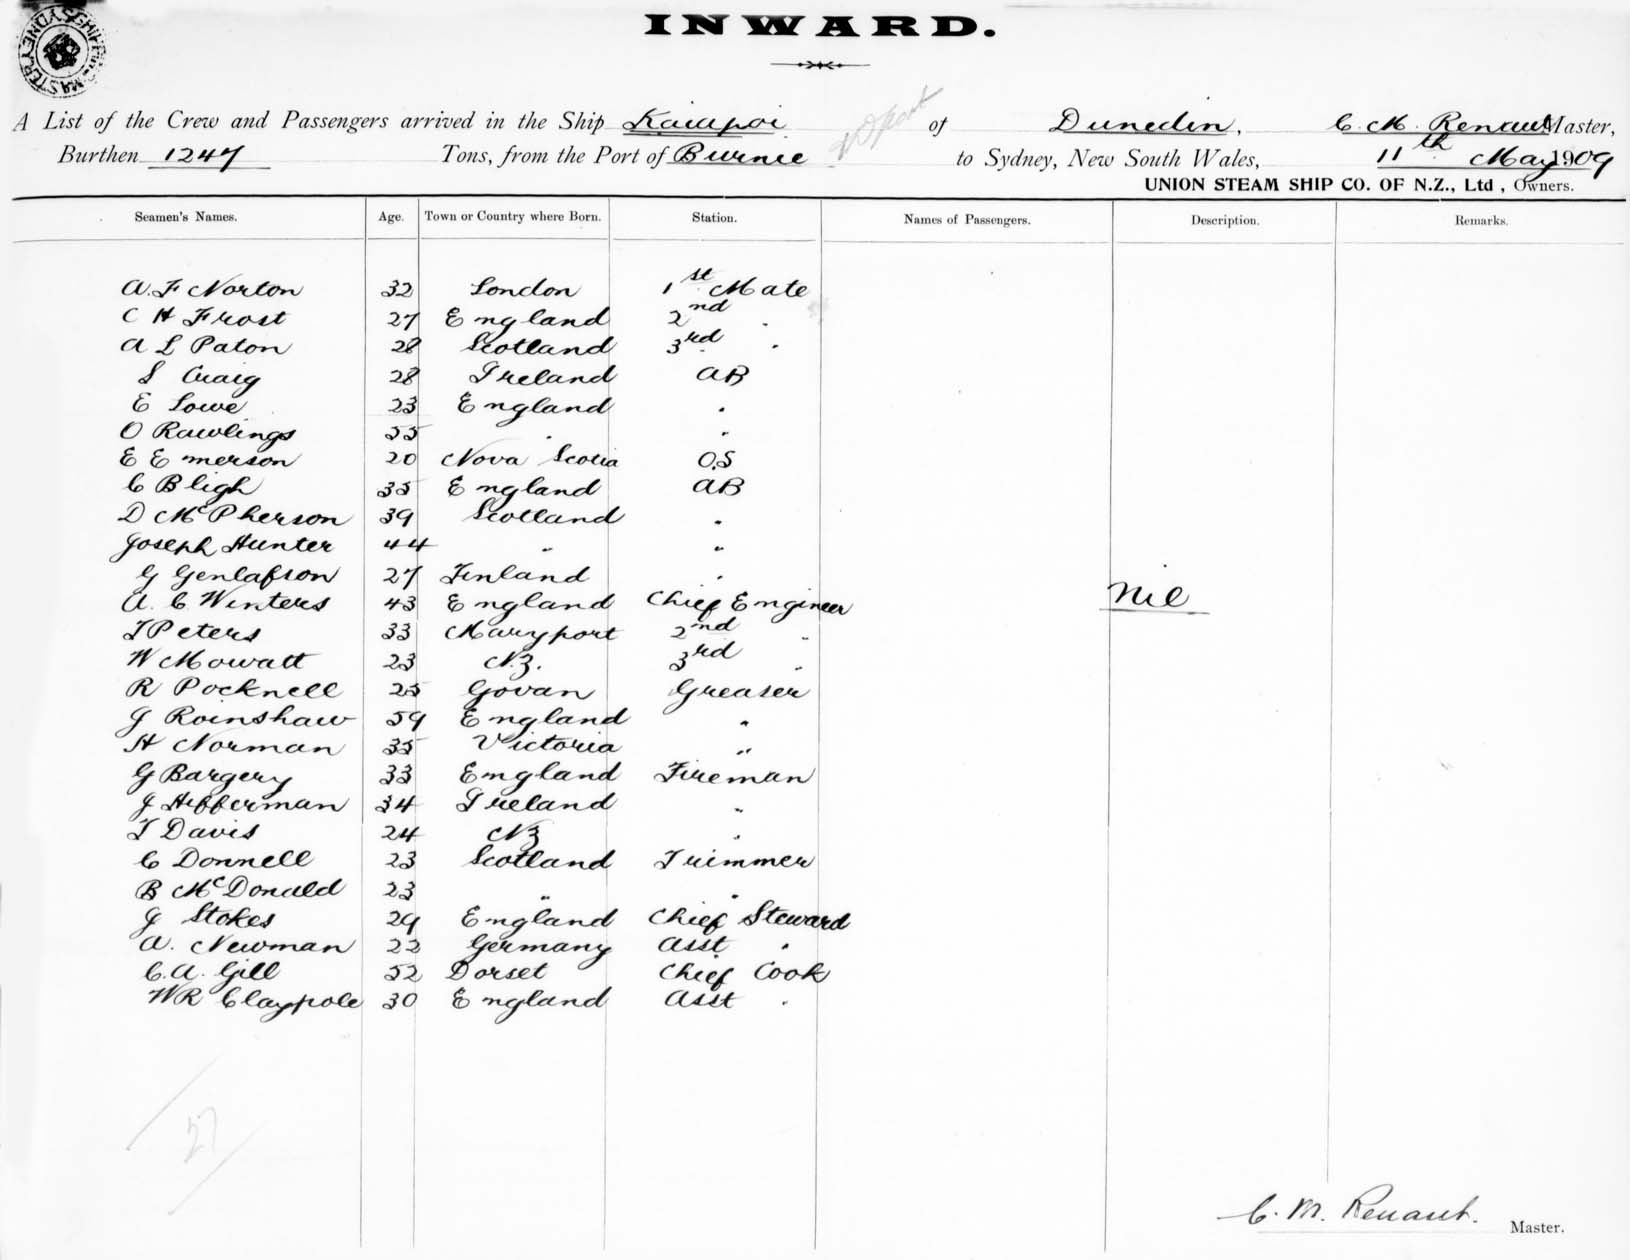 INWARD.
A List of the Crew and Passengers arrived in the Ship Kaiapoi of Dunedin, C. M. Renaut Master,
Burthen 1247 Tons, from the Port of Burnie to Sydney, New South Wales, 11th May 1909
UNION STEAM SHIP CO. OF N.Z., Ltd , Owners.
Seamen's Names. Age. Town or Country where Born. Station. Names of Passengers. Description. Remarks.
A. F Norton 32 London 1st Mate
C H Frost 27 England 2nd "
A L Paton 28 Scotland 3rd "
S Craig 28 Ireland AB
E Lowe 23 England "
O Rawlings 55 " "
E Emerson 20 Nova Scotia O.S
C Bligh 35 England AB
D McPherson 39 Scotland "
Joseph Hunter 44 " "
G Genlafson 27 Finland "
A. C Winters 43 England Chief Engineer
Nil
T Peters 33 Maryport 2nd "
W Mowatt 23 N.Z. 3rd "
R Pocknell 25 Govan Greaser
J Roinshaw 59 England "
H Norman 35 Victoria "
G Bargery 33 England Fireman
J Hefferman 34 Ireland "
T Davis 24 NZ "
C Donnell 23 Scotland Trimmer
B McDonald 23 " "
J Stokes 29 England Chief Steward
A. Newman 22 Germany Asst "
C. A. Gill 52 Dorset Chief Cook
WR Claypole 30 England Asst "
27
C. M. Renaut. Master.